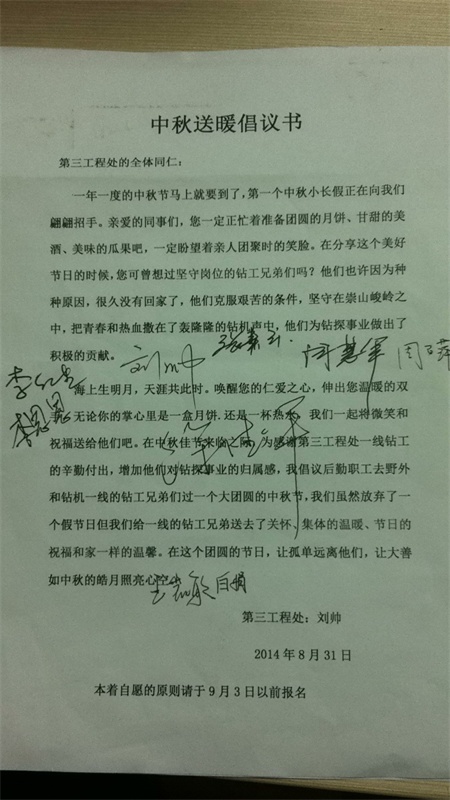 中秋送暖倡议书
第三工程处的全体同仁：
一年一度的中秋节马上就要到了，第一个中秋小长假正在向我们
翩翩招手。亲爱的同事们，您一定正忙着准备团圆的月饼、甘甜的美
酒、美味的瓜果吧，一定盼望着亲人团聚时的笑脸。在分享这个美好
节日的时候，您可曾想过坚守岗位的钻工兄弟们吗？他们也许因为种
种原因，很久没有回家了，他们克服艰苦的条件，坚守在崇山峻岭之
中，把青春和热血撒在了轰隆隆的钻机声中，他们为钻探事业做出了
积极的贡献。
刘帅
闫慧军
海上生明月，天涯共此时。唤醒您的仁爱之心，伸出您温暖的双
手，无论你的掌心里是一盒月饼.还是一杯热水，我们一起将微笑和
祝福送给他们吧。在中秋佳节来临之际，为感谢第三工程处一线钻工
的辛勤付出，增加他们对钻探事业的归属感，我倡议后勤职工去野外
和钻机一线的钻工兄弟们过一个大团圆的中秋节，我们虽然放弃了一
个假节日但我们给一线的钻工兄弟送去了关怀、集体的温暖、节日的
祝福和家一样的温馨。在这个团圆的节日，让孤单远离他们，让大善
如中秋的皓月照亮心空。
白娟
第三工程处：刘帅
2014年8月31日
本着自愿的原则请于9月3日以前报名